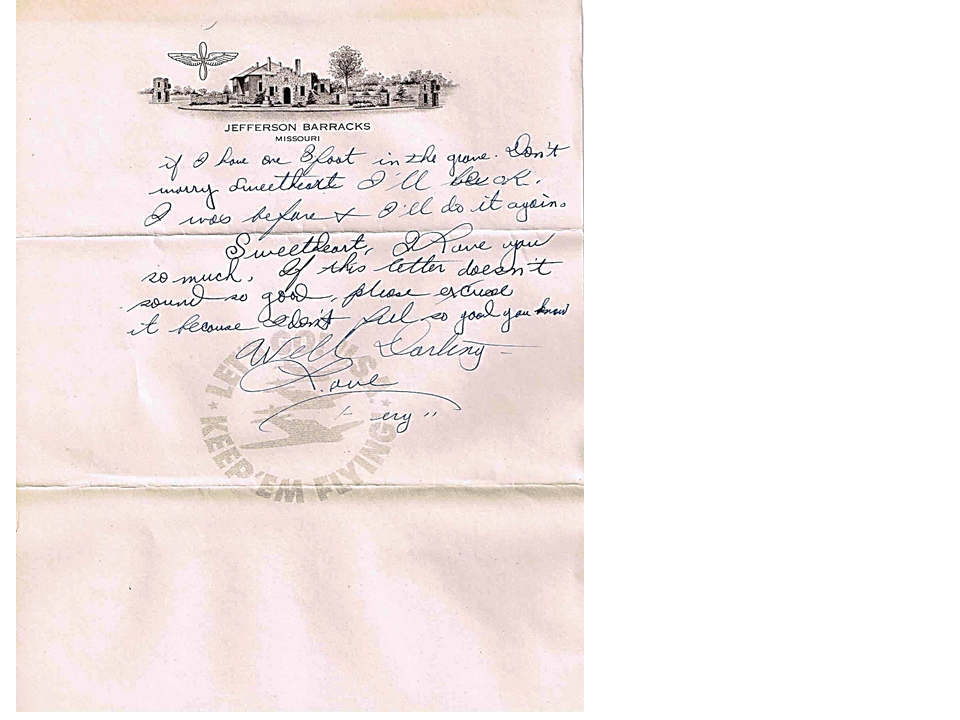 JEFFERSON BARRACKS
MISSOURI
if I have one foot in the grave. Don't
worry Sweetheart I'll be ok.
I was before & I'll do it again.
Sweetheart, I Love you
so much. If this letter doesn't
sound so good, please excuse
it because I don't feel so good you know
Well Darling —
Love
"Jerry"
LET'S GO! U.S.A.
KEEP 'EM FLYING!